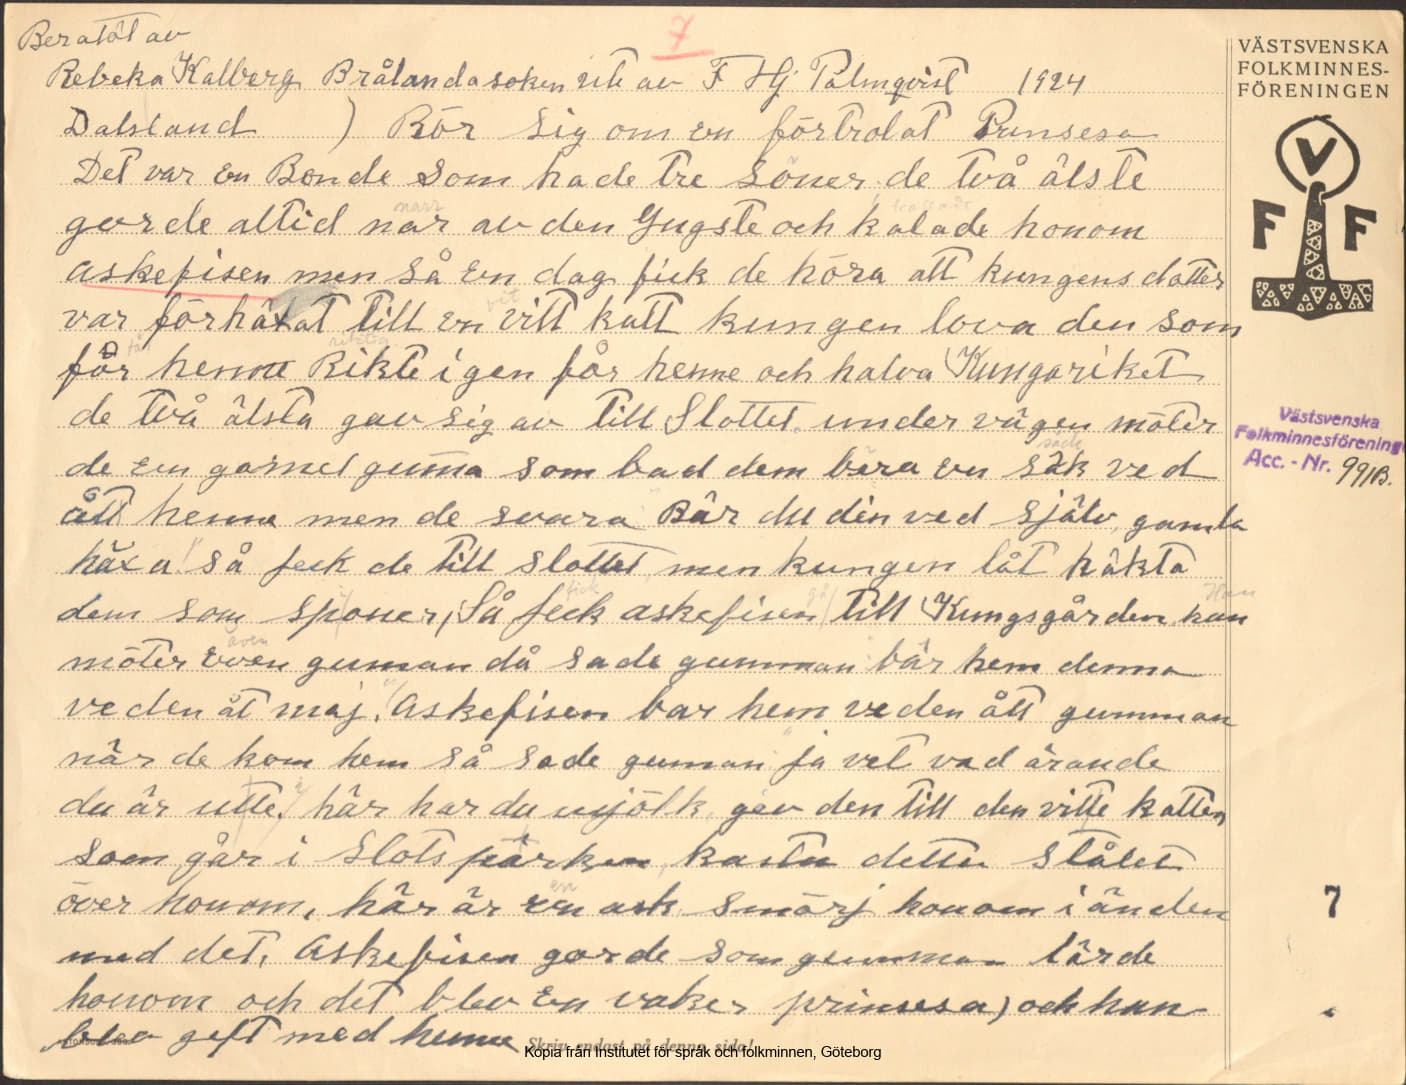 Beratât av
7
Rebeka Kalberg Brålanda soken ute av F Hj Palmqvist 1924
Dalsland ) Rör sig om en förtrolat Prinsesa
Det var en Bonde som hade tre söner de två älste
narr kallade
gorde altid nar av den Yngste och kalade honom
askefisen men så en dag fick de höra att kungens dotter
vit
var förhäxat till en vitt katt kungen lova den som
får riktig
får henne Rikte igen får henne och halva Kungariket
de två älsta gav sig av till Slottet. under vägen möter
säck
de en gamel guma som bad dem bära en säk ved
ått henne men de svara Bär du din ved själv, gamla
häxa! så feck de till slottet, men kungen låt häkta
fick gå Han
dem som sponer, Så feck askefisen till Kungsgården han
även
möter even guman då sade gumman bär hem denna
veden åt maj. Askefisen bar hem veden ått gumman
när de kom hem så sade guman ja vet vad ärande
du är utte, här har du mjölk, gev den till den vitte katten,
som går i Slotsparken, kasta detta stålet
en
över honom, här är en ask smörj honom i änden
med det, Askefisen gorde som gumman lärde
honom och det blev en vaker prinsesa) och han
blev geft med henne
Skriv endast på denna sida!
VÄSTSVENSKA
FOLKMINNES-
FÖRENINGEN
V
F F
Västsvenska
Folkminnesförening
Acc. - Nr. 991B.
7
Kopia från Institutet för språk och folkminnen, Göteborg